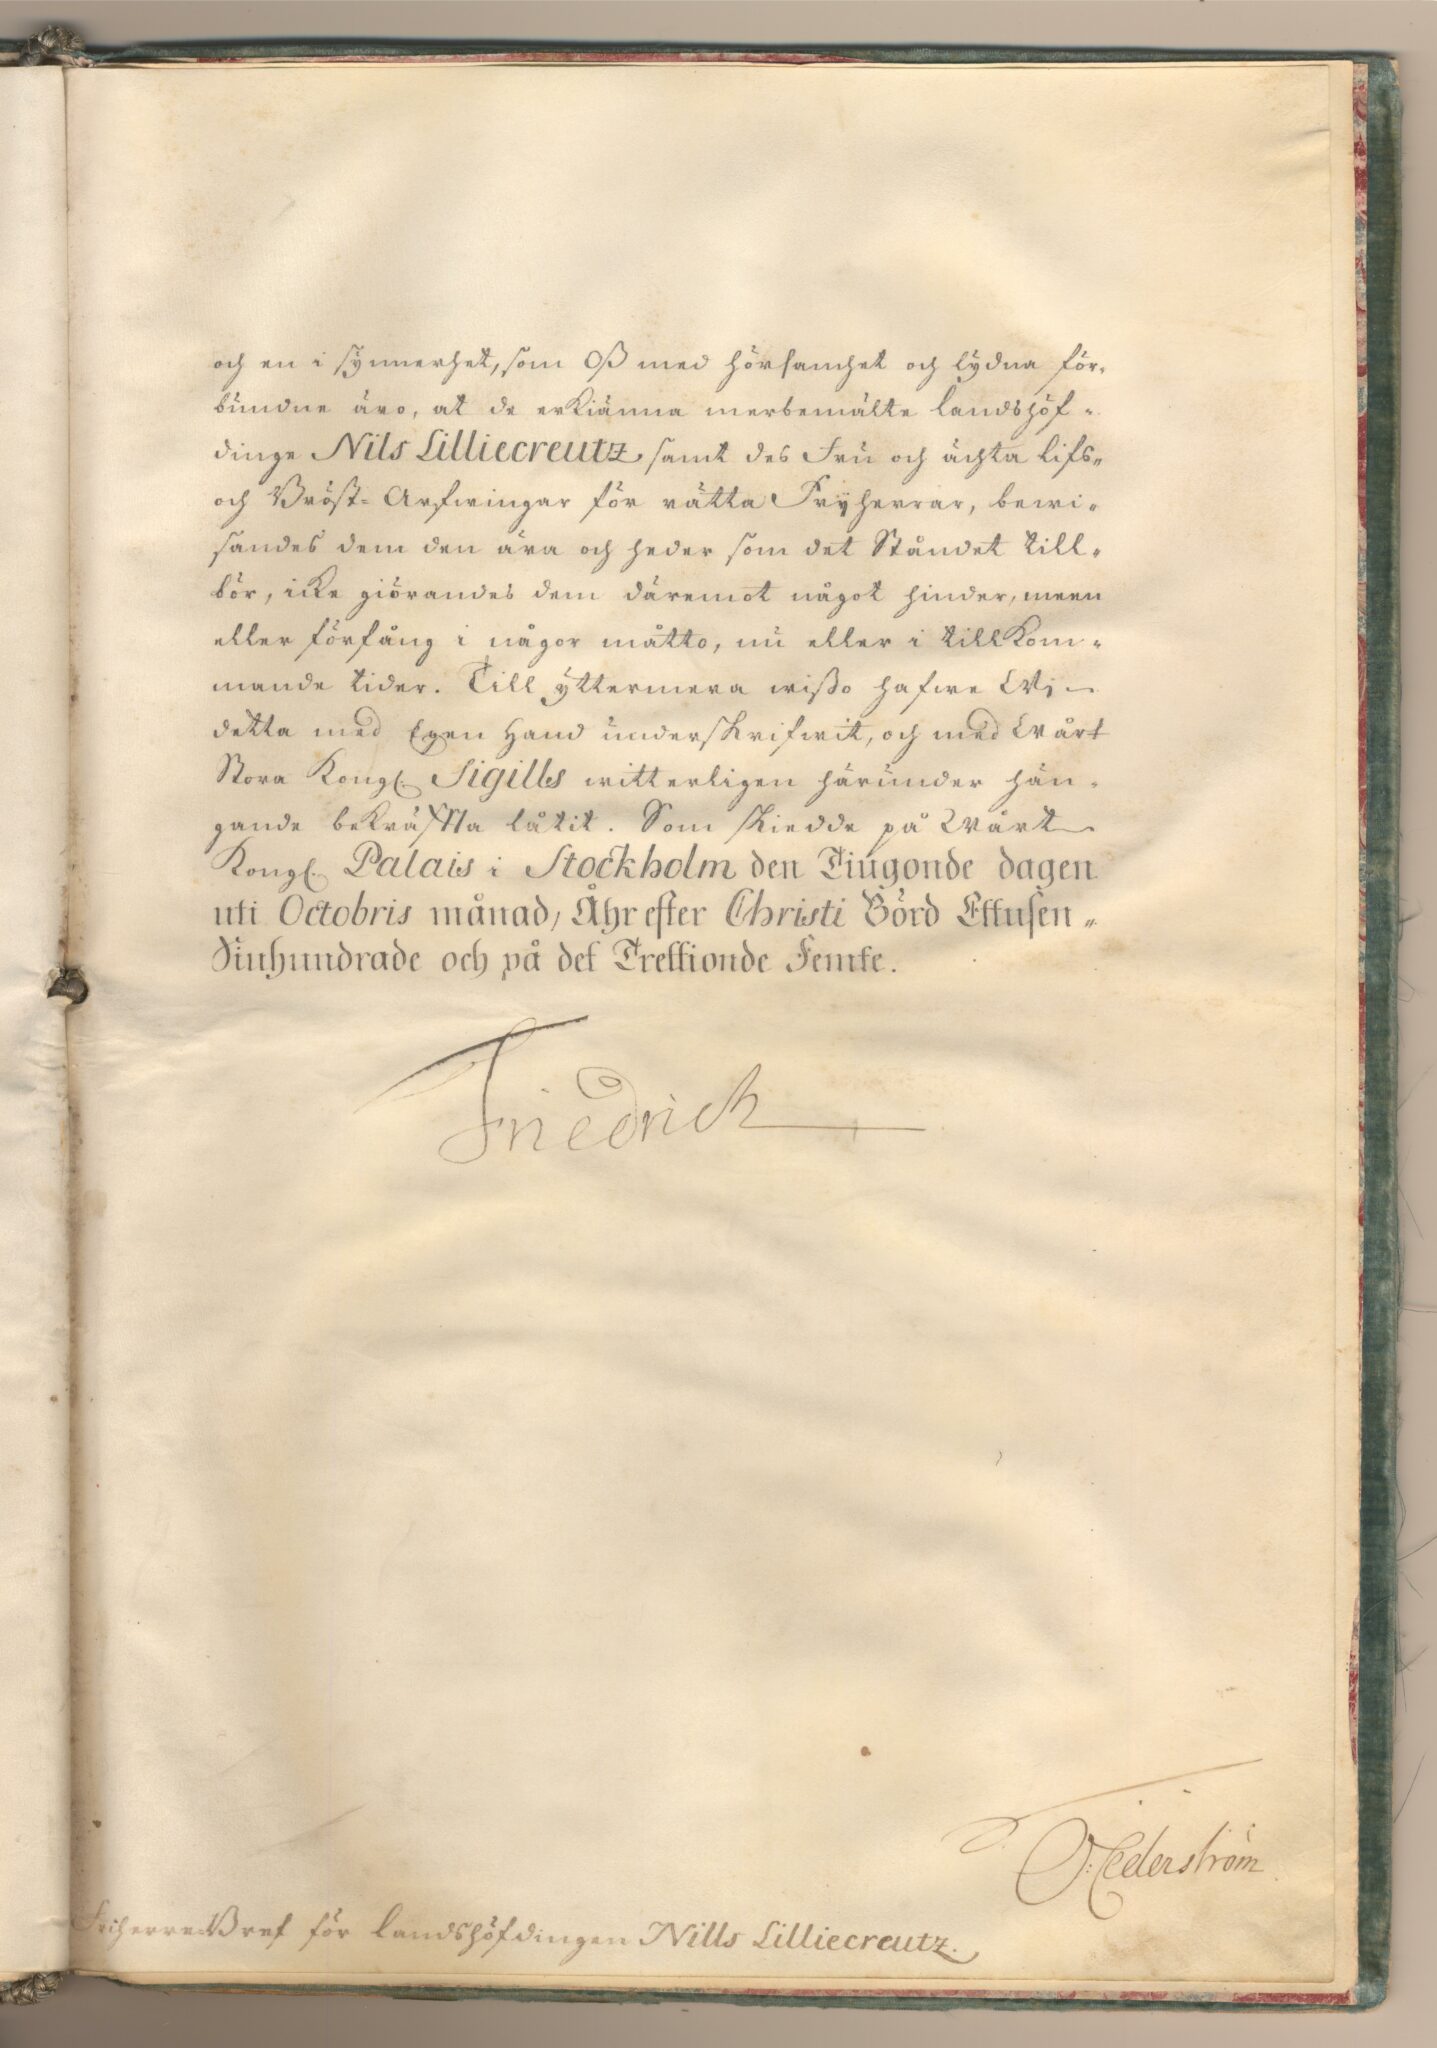 och en i synnerhet, som Oß med hörsamhet och lydna för-
bundne äro, at de erkiänna merbemälte Landshöf-
dinge Nils Lilliecreutz samt des Fru och ächta Lifs-
och Bröst-Arfwingar för rätta Fryherrar, bewi-
sandes dem den ära och heder som det Ståndet till-
bör, icke giörandes dem däremot något hinder, meen
eller förfång i någor måtto, nu eller i tillkom-
mande tider. Till yttermera wißo hafwe Wi
detta med Egen Hand underskrifwit, och med Wårt
Stora Kongl. Sigills witterligen härunder hän-
gande bekräffta låtit. Som skiedde på Wårt
Kongl. Palais i Stockholm den Tiugonde dagen
uti Octobris månad, Åhr efter Christi Börd Ettusen-
Siuhundrade och på det Trettionde Femte.
Friedrich
Cederström
Friherre-Bref för Landshöfdingen Nills Lilliecreutz.